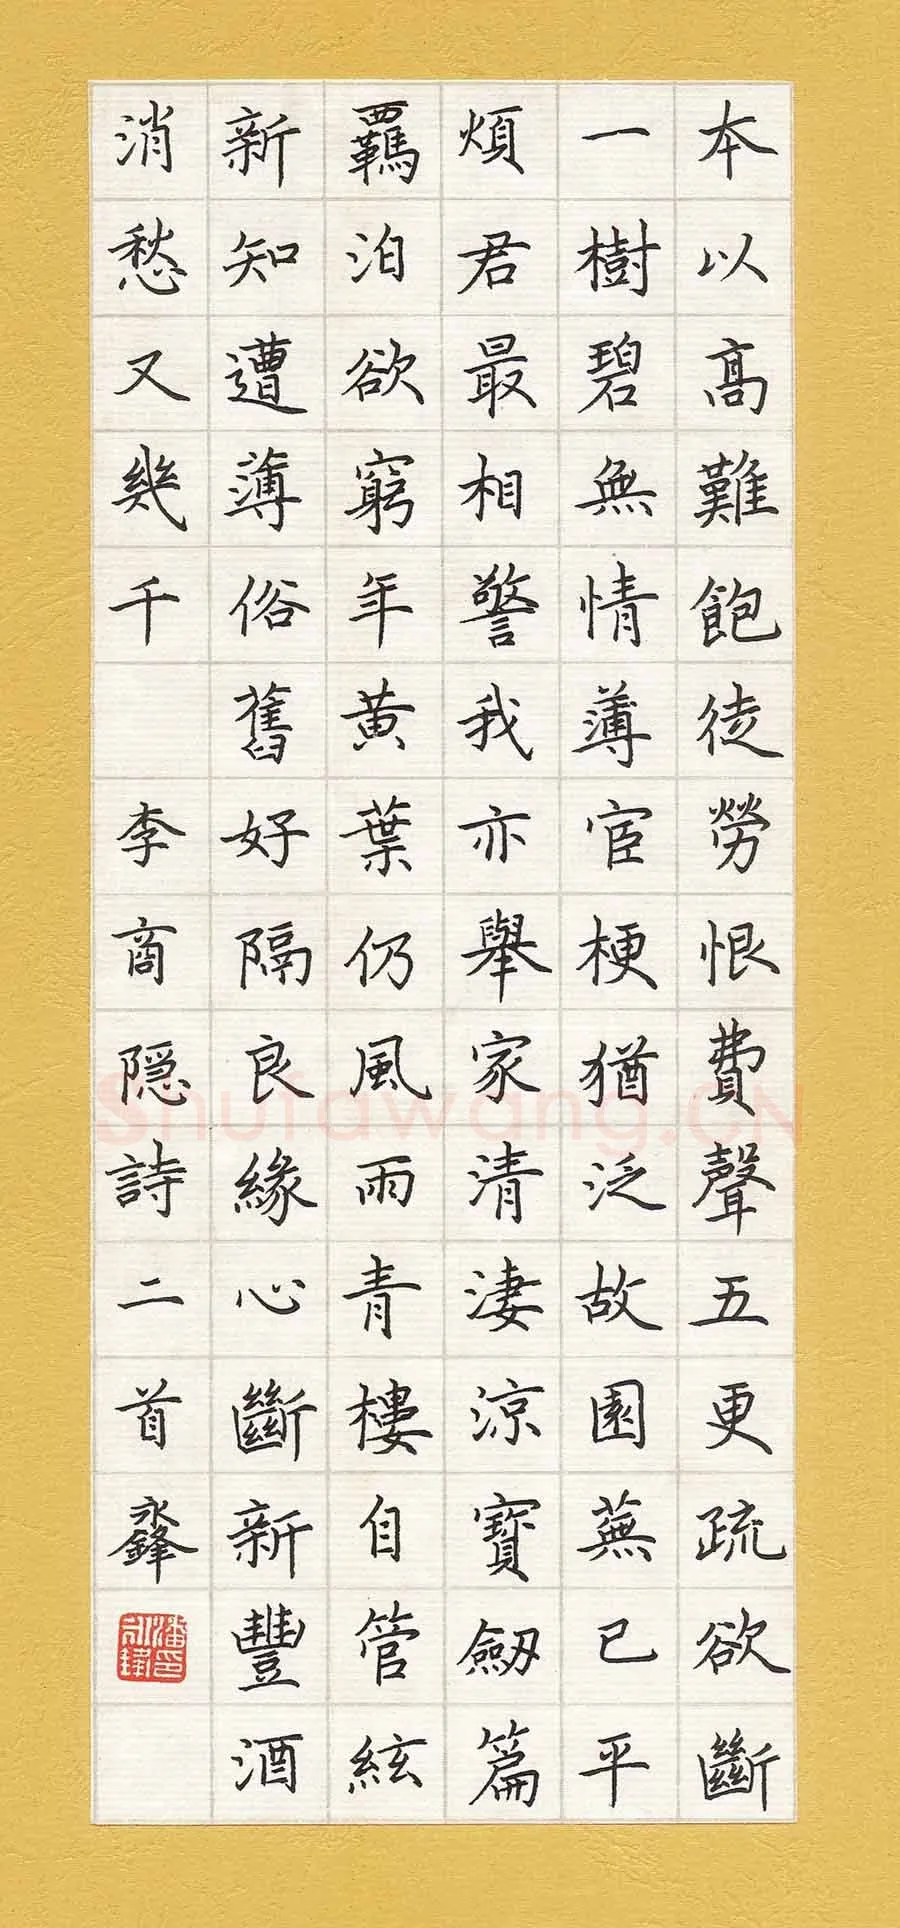 本以高難飽徒勞恨費聲五更疏欲斷
一樹碧無情薄宦梗猶泛故園蕪已平
煩君最相警我亦舉家清淒涼寶劒篇
羈泊欲窮年黃葉仍風雨青樓自管絃
新知遭薄俗舊好隔良緣心斷新豐酒
消愁又幾千 李商隠詩二首 永鋒
潘永鋒印
Shufawang.CN